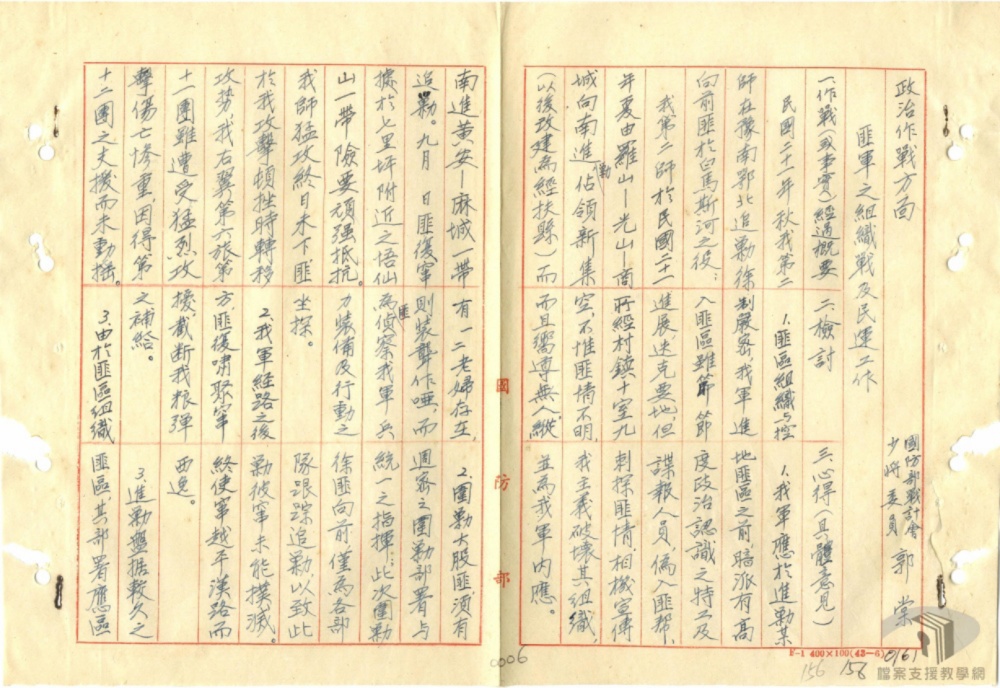 政治作戰方面
匪軍之組織戰及民運工作
國防部戰計會
少將委員 郭棠
一、作戰(或事實)經過概要
民國二十一年秋我第二
師在豫南鄂北追勦徐
向前匪於白馬斯河之役：
我第二師於民國二十一
年夏由羅山—光山—商
城向南進勦佔領新集
(以後改建為經扶縣)而
南進黃安—麻城一帶
追勦。九月 日匪復竄
據於七里坪附近之悟仙
山一帶險要頑强抵抗
我師猛攻終日未下匪
於我攻擊頓挫時轉移
攻势我右翼第六旅第
十一團雖遭受猛烈攻
擊傷亡慘重，因得第
十二團之支援而未動搖。
二、檢討
1.匪區組織与控
制嚴密，我軍進
入匪區雖節節
進展，迭克要地，但
所經村鎮十室九
空，不惟匪情不明，
而且嚮導無人，縱
有一二老婦存在，
則裝聾作啞，而
為匪偵察我軍兵
力裝備及行動之
坐探。
2.我軍経路之後
方，匪復嘯聚竄
擾，截断我粮弹
之補給。
3.由於匪區組織
三、心得(具體意見)
1.我軍應於進勦某
地匪區之前暗派有高
度政治認識之特工及
諜報人員，偽入匪幫，
刺探匪情，相機宣傳
我主義破壞其組織，
並為我軍內應。
2.圍勦大股匪須有
週密之圍勦部署与
統一之指揮：此次圍勦
徐匪向前僅為各部
隊跟踪追勦以致此
勦彼竄未能撲滅。
終使竄越平漢路而
西逸。
3.進勦盤据較久之
匪區其部署應區
國防部
F-1 400×100(42-6)
0006
156
158
檔案支援教學網